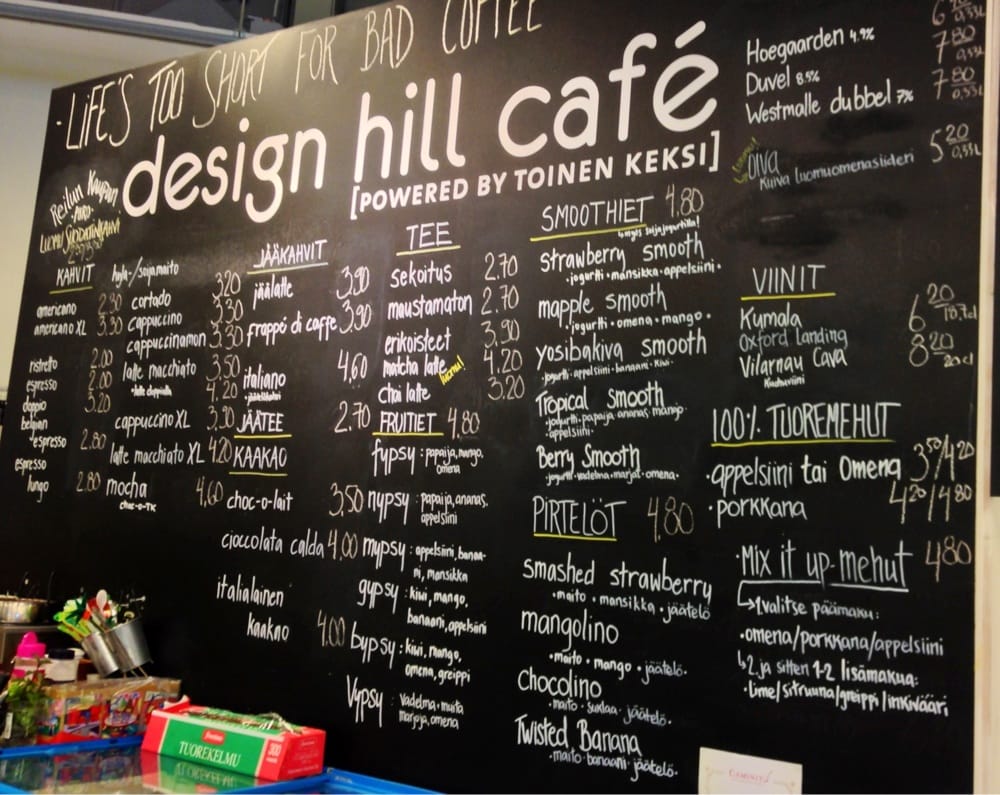 ·LIFE'S TOO SHORT FOR BAD COFFEE
design hill café
[POWERED BY TOINEN KEKSI]
Reilun Kaupan
KAHVIT
americano 2.80
americano XL 3.30
ristretto 2.00
espresso 2.00
doppio 3.20
belgian
espresso 2.80
espresso
lungo 2.80
hyla-/soijamaito
cortado 3.20
cappuccino 3.30
cappuccinamon 3.30
latte macchiato 3.50
4.20
cappuccino XL 3.90
latte macchiato XL 4.20
mocha 4,60
choc-o-TK
JÄÄKAHVIT
jäälatte 3.90
frappé di caffe 3,90
italiano 4,60
JÄÄTEE 2.70
KAAKAO
choc-o-lait 3,50
cioccolata calda 4.00
italialainen
kaakao 4.00
TEE
sekoitus 2.70
maustamaton 2.70
erikoisteet 3.90
matcha latte 4.20
chai latte 3.20
FRUITIET 4,80
fypsy : papaija, mango,
omena
nypsy : papaija, ananas,
appelsiini
mypsy : appelsiini, banaa-
ni, mansikka
gypsy : kiwi, mango,
banaani, appelsiini
bypsy : kiwi, mango,
omena, greippi
Vypsy : vadelma, muita
marjoja, omena
SMOOTHIET 4.80
strawberry smooth
·jogurtti·mansikka·appelsiini·
mapple smooth
·jogurtti·omena·mango·
yosibakiva smooth
·jogurtti·appelsiini·banaani·kiwi·
Tropical smooth
·jogurtti·papaija·ananas·mango·
·appelsiini·
Berry Smooth
·jogurtti·vadelma·marjat·omena·
PIRTELÖT 4,80
smashed strawberry
·maito·mansikka·jäätelö
mangolino
·maito·mango·jäätelö·
chocolino
·maito·suklaa·jäätelö·
Twisted Banana
·maito·banaani·jäätelö·
6 20 0,33L
Hoegaarden 4.9% 7 80 0,33L
Duvel 8.5% 7 80 0,33L
Westmalle dubbel 7%
OIVA 5 20 0,33L
Kuiva luomuomenasiideri
VIINIT
Kumala 6 20
Oxford landing
Vilarnau cava 8 20 20cl
Kuohuviini
100% TUOREMEHUT
·appelsiini tai omena 3 50/4 20
·porkkana 4 20/4 80
·MIX it up-mehut 4 80
1.valitse päämaku:
·omena/porkkana/appelsiini
2.ja sitten 1-2 lisämakua:
·lime/sitruuna/greippi/inkivääri
TUOREKELMU
300